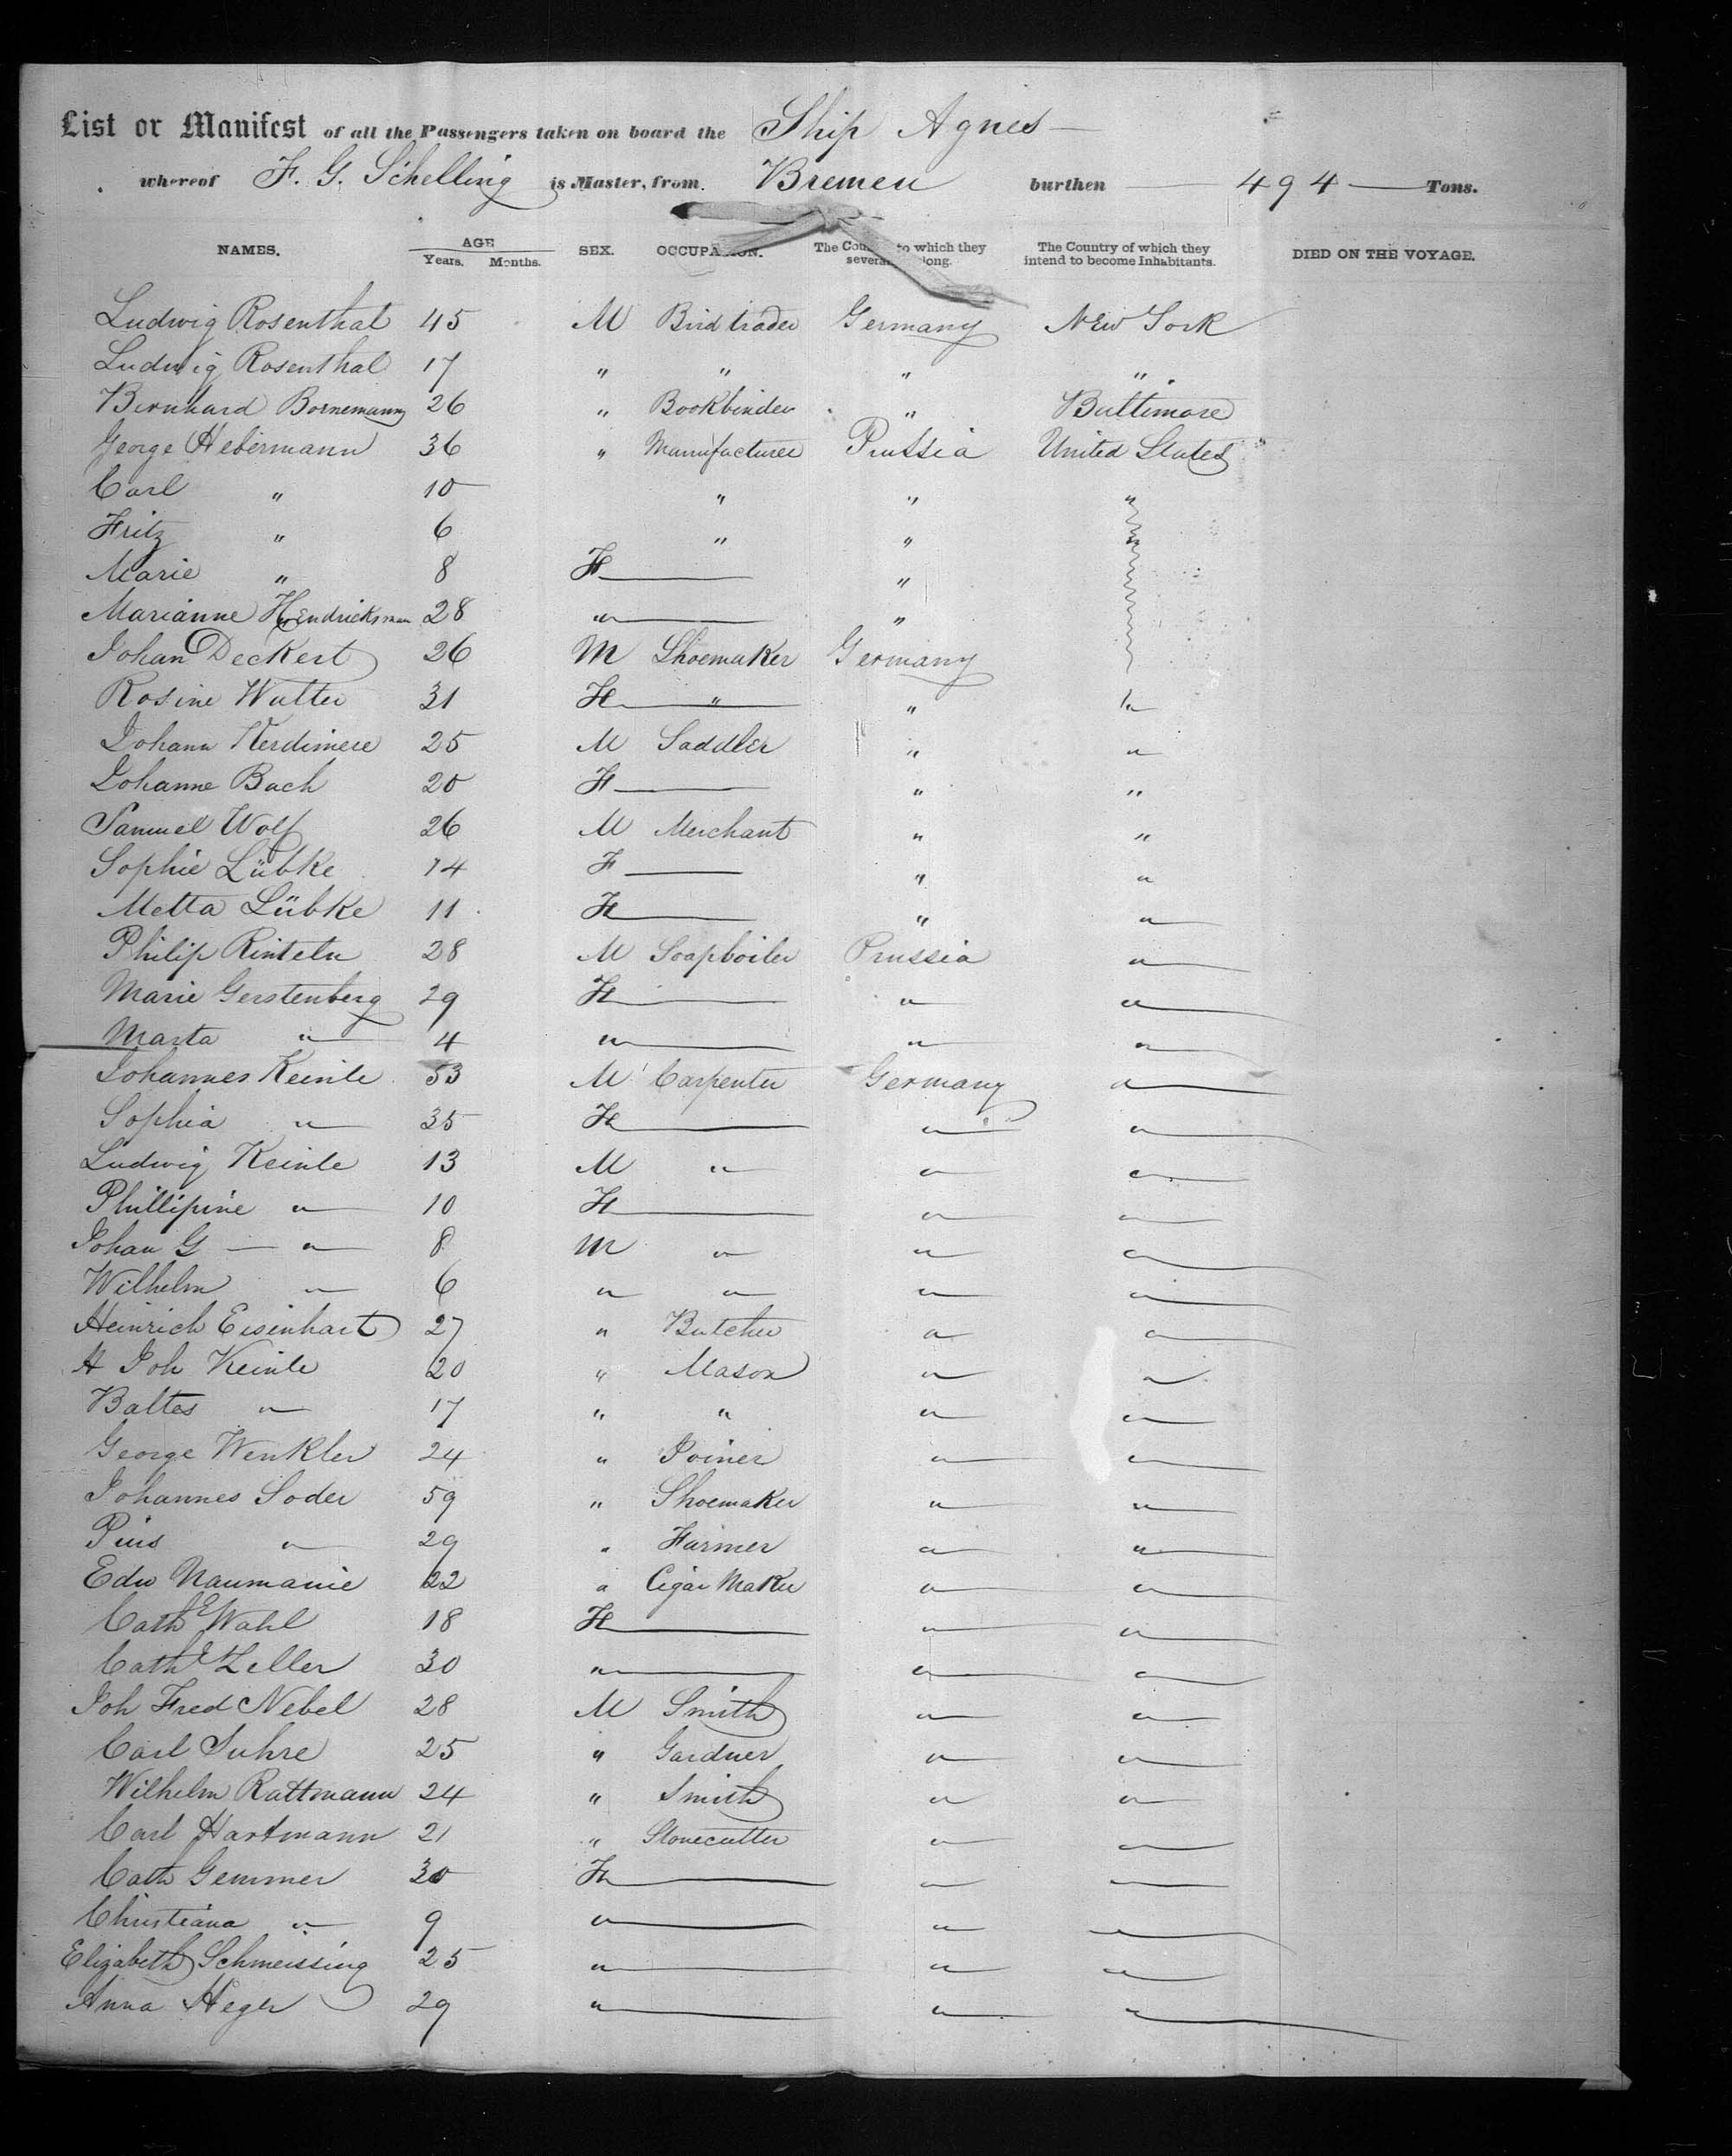 List or Manifest of all the Passengers taken on board the Ship Agnes
whereof F. G. Schelling is Master, from Bremen burthen 494 Tons.
NAMES. AGE Years. Months. SEX. OCCUPATION. The Country to which they severally belong. The Country of which they intend to become Inhabitants. DIED ON THE VOYAGE.
Ludwig Rosenthal 45 M Bird trader Germany New York
Ludwig Rosenthal 17 " " " "
Bernhard Bornemann 26 " Bookbinder " Baltimore
George Hebermann 36 " Manufacturer Prussia United States
Carl " 10 " " "
Fritz " 6 " " "
Marie " 8 F — "
Marianne Hendricksman 28 " — "
Johan Deckert 26 M Shoemaker Germany
Rosine Wutter 31 F " " "
Johann 25 M Saddler " "
Johanne Bach 20 F — " "
Samuel Wolf 26 M Merchant " "
Sophie Lübke 14 F — " "
Metta Lübke 11 F — " "
Philip Rinteln 28 M Soapboiler Prussia "
Marie Gerstenberg 29 F — " "
Marta " 4 " — " "
Johannes Keinle 53 M Carpenter Germany "
Sophia " 35 F — " "
Ludwig Keinle 13 M " " "
Phillipine " 10 F — " "
Johan G — " 8 M " " "
Wilhelm " 6 " " " "
Heinrich Eisenhart 27 " Butcher " "
H Joh Keinle 20 " Mason " "
Baltes " 17 " " " "
George Wenkler 24 " Joiner " "
Johannes Soder 59 " Shoemaker " "
Pius " 29 " Farmer " "
Edw Naumanie 22 " Cigar Maker " "
Cathe Wahl 18 F — " "
Cathe Zeller 30 " — " "
Joh Fred Nebel 28 M Smith " "
Carl Suhre 25 " Gardner " "
Wilhelm Rattmann 24 " Smith " "
Carl Hartmann 21 " Stonecutter " "
Cath Gemmer 30 F — " "
Christiana " 9 " — " "
Elizabeth Schmeissing 25 " — " "
Anna Heger 29 " — " "